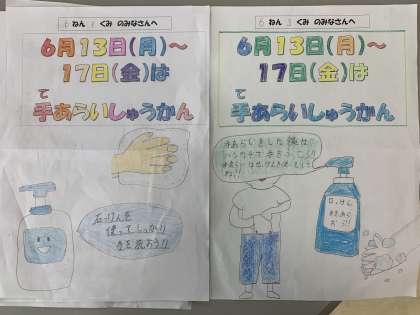 6 ねん 1 くみ のみなさんへ
6月13日(月)～
17日(金)は
て
手あらいしゅうかん
石けんを
使ってしっかり
手を洗おう!!
6 ねん 3 くみ のみなさんへ
6月13日(月)～
17日(金)は
て
手あらいしゅうかん
手あらいをした後は
ハンカチで手をふこう!